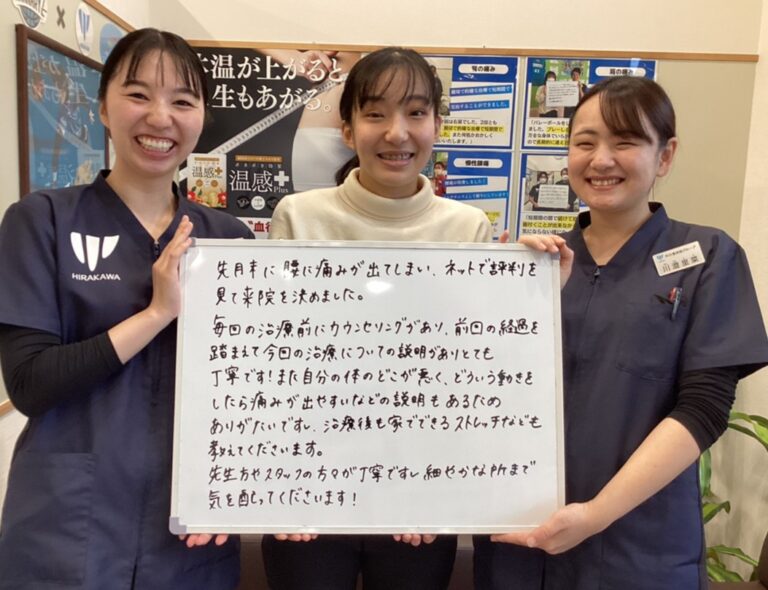 体温が上がると
人生もあがる。
温感
温感
Plus
肩の痛み
慢性腰痛
HIRAKAWA
先月末に腰に痛みが出てしまい、ネットで評判を
見て来院を決めました。
毎回の治療前にカウンセリングがあり、前回の経過を
踏まえて今回の治療についての説明がありとても
丁寧です!また自分の体のどこが悪く、どういう動きを
したら痛みが出やすいなどの説明もあるため
ありがたいですし、治療後も家でできるストレッチなども
教えてくださいます。
先生方やスタッフの方々が丁寧ですし細やかな所まで
気を配ってくださいます!